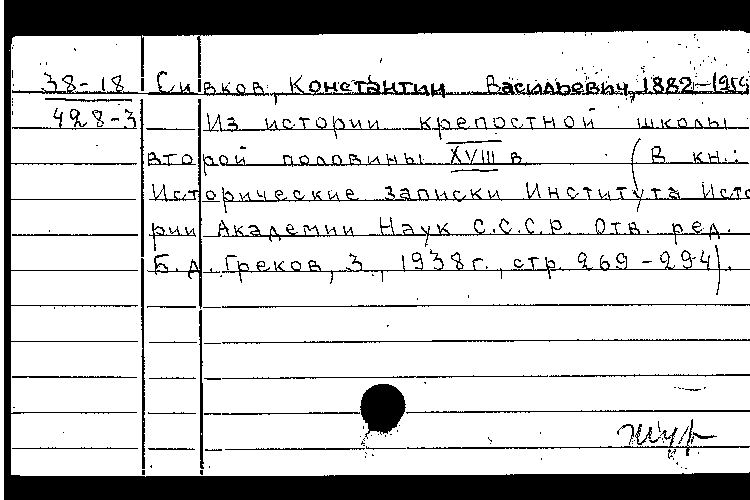 38-18 Сивков, Константин Васильевич, 1882-1959
428-3 Из истории крепостной школы
второй половины XVIII в (В кн.:
Исторические записки Института Исто
рии Академии Наук С.С.С.Р. Отв. ред.
Б.Д. Греков, 3, 1938г., стр. 269-294).
жур